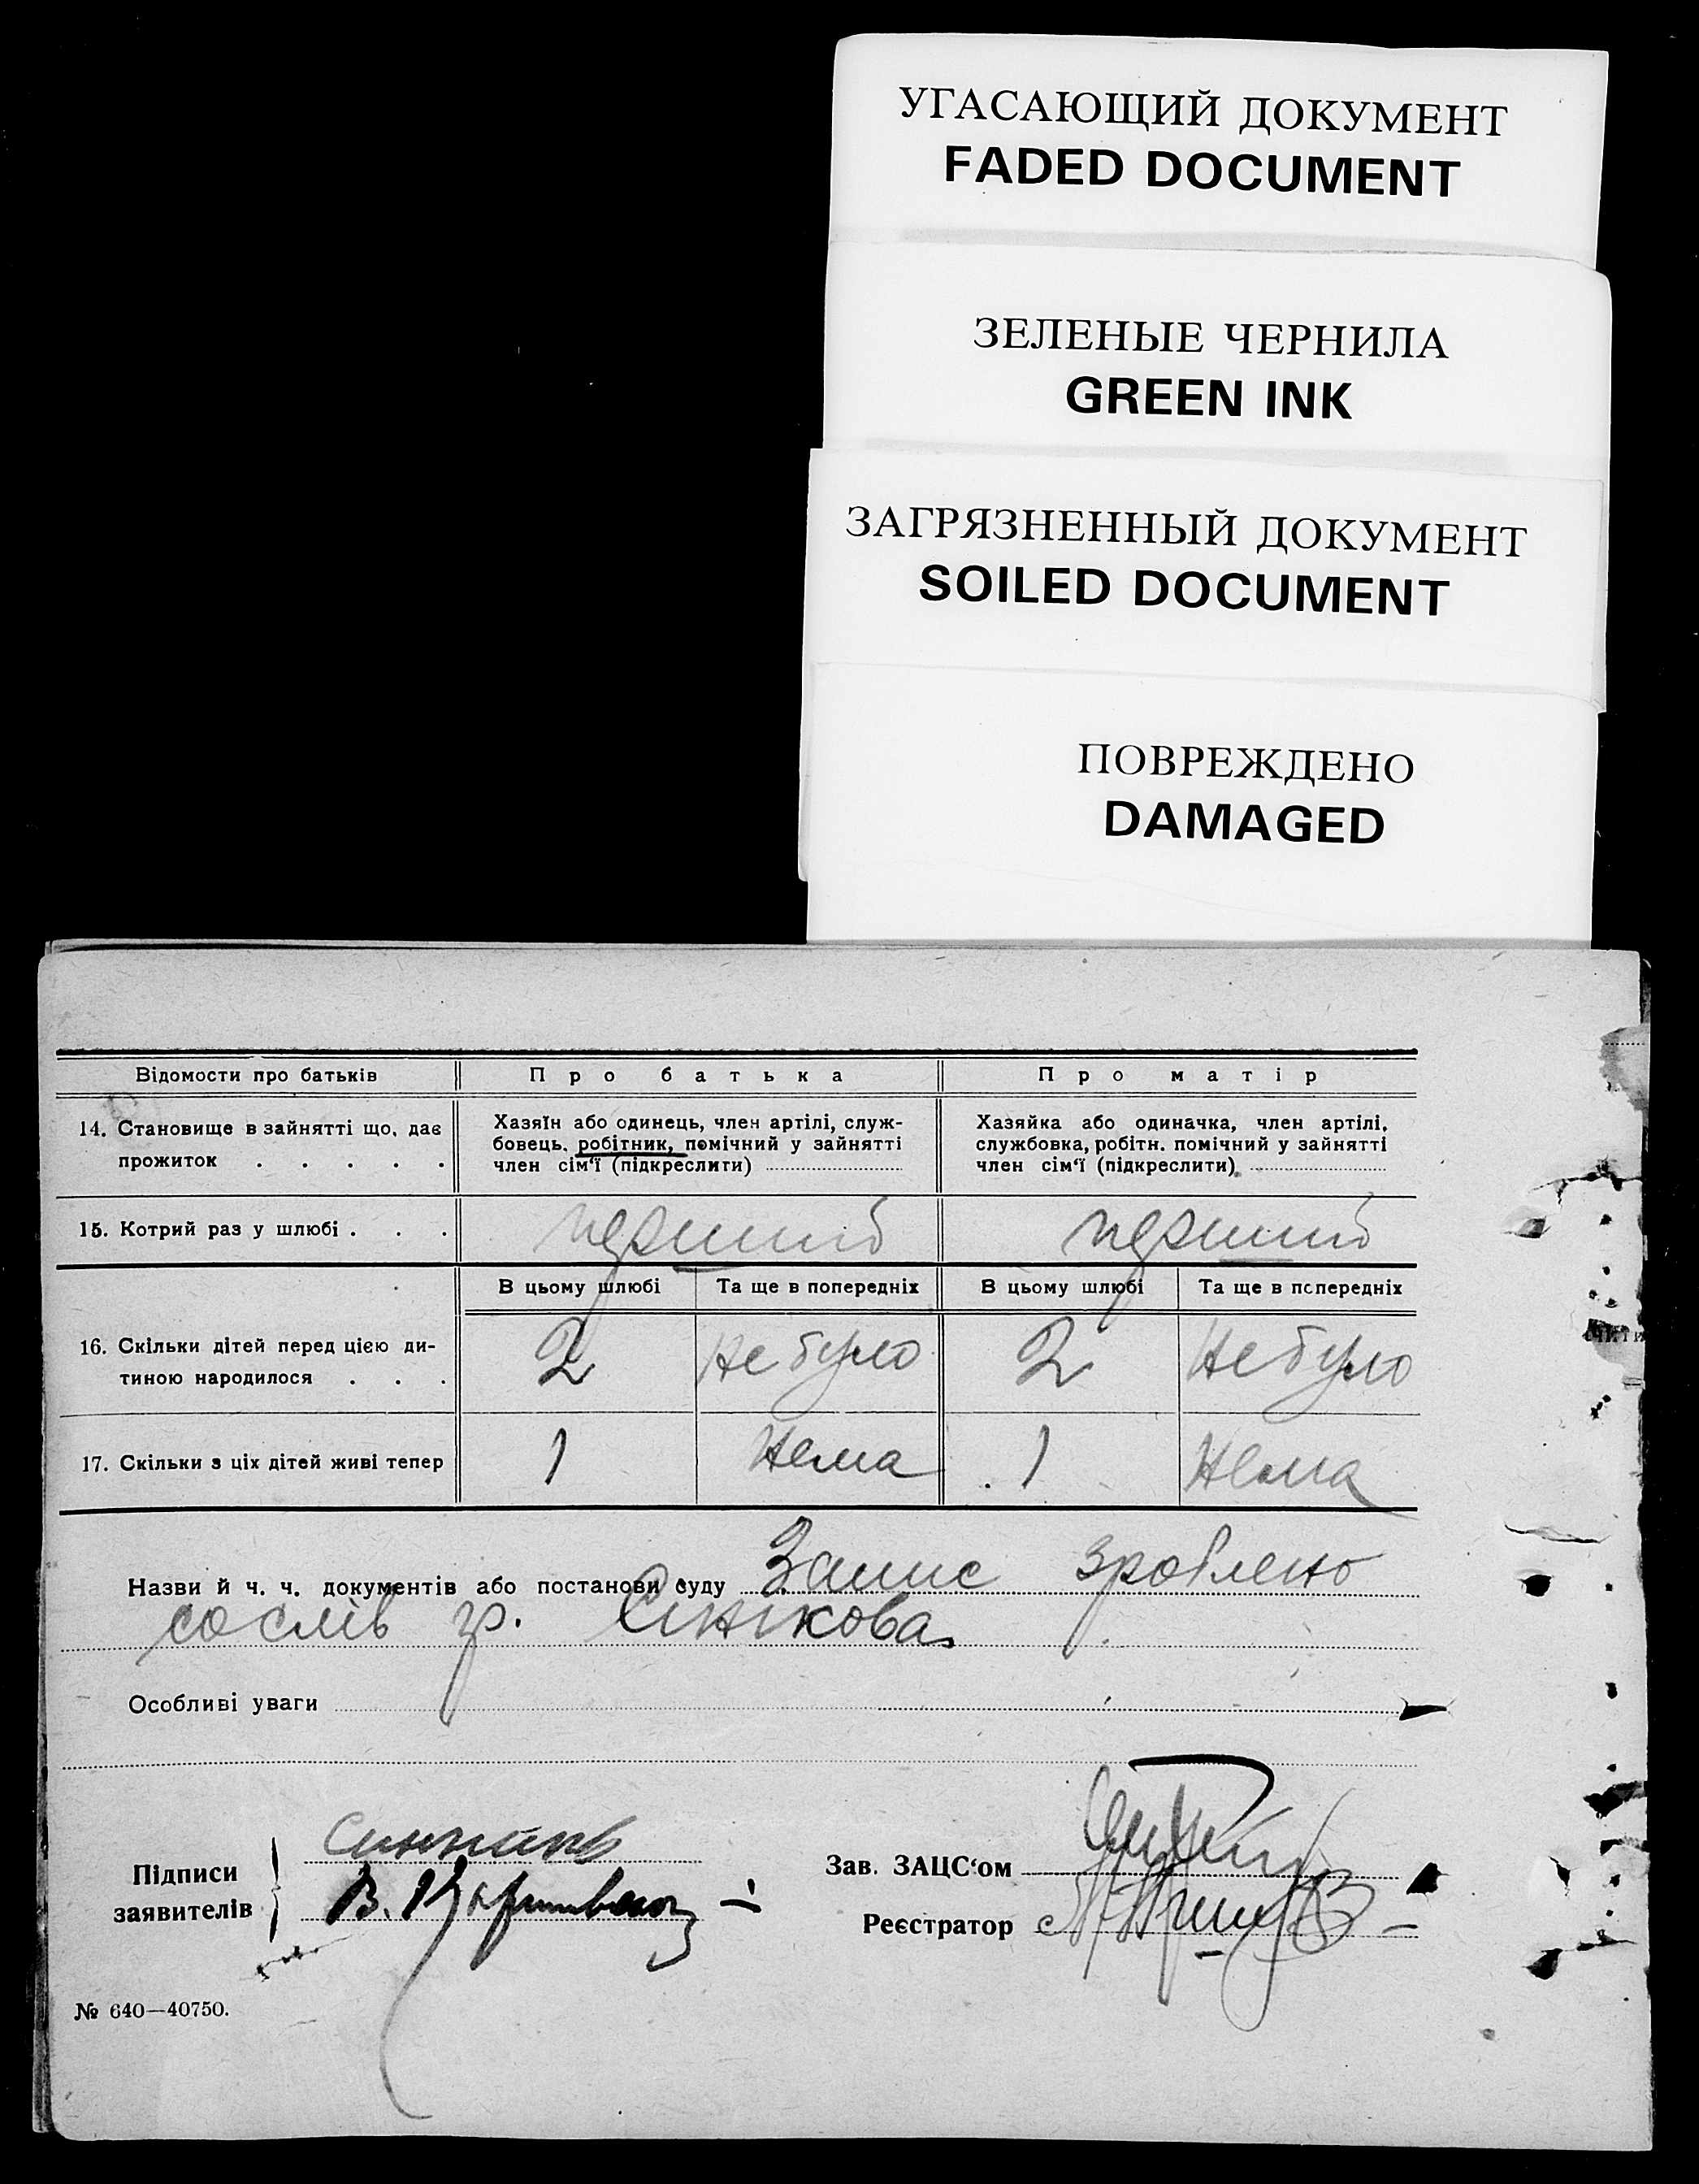 УГАСАЮЩИЙ ДОКУМЕНТ
FADED DOCUMENT
ЗЕЛЕНЫЕ ЧЕРНИЛА
GREEN INK
ЗАГРЯЗНЕННЫЙ ДОКУМЕНТ
SOILED DOCUMENT
ПОВРЕЖДЕНО
DAMAGED
Відомости про батьків
Про батька
Про матір
14. Становище в зайнятті що, дає
прожиток . . . . .
Хазяїн або одинець, член артілі, служ-
бовець, робітник, помічний у зайнятті
член сім'ї (підкреслити)
Хазяйка або одиначка, член артілі,
службовка, робітн. помічний у зайнятті
член сім'ї (підкреслити)
15. Котрий раз у шлюбі . . .
перший
перший
В цьому шлюбі
Та ще в попередніх
В цьому шлюбі
Та ще в попередніх
16. Скільки дітей перед цією ди-
тиною народилося . . .
2
не було
2
не було
17. Скільки з ціх дітей живі тепер
1
нема
1
нема
Назви й ч. ч. документів або постанови суду Запис зроблено
со слів гр. Сінікова
Особливі уваги
Підписи
заявителів
В.
Зав. ЗАЦС'ом
Реєстратор
№ 640—40750.